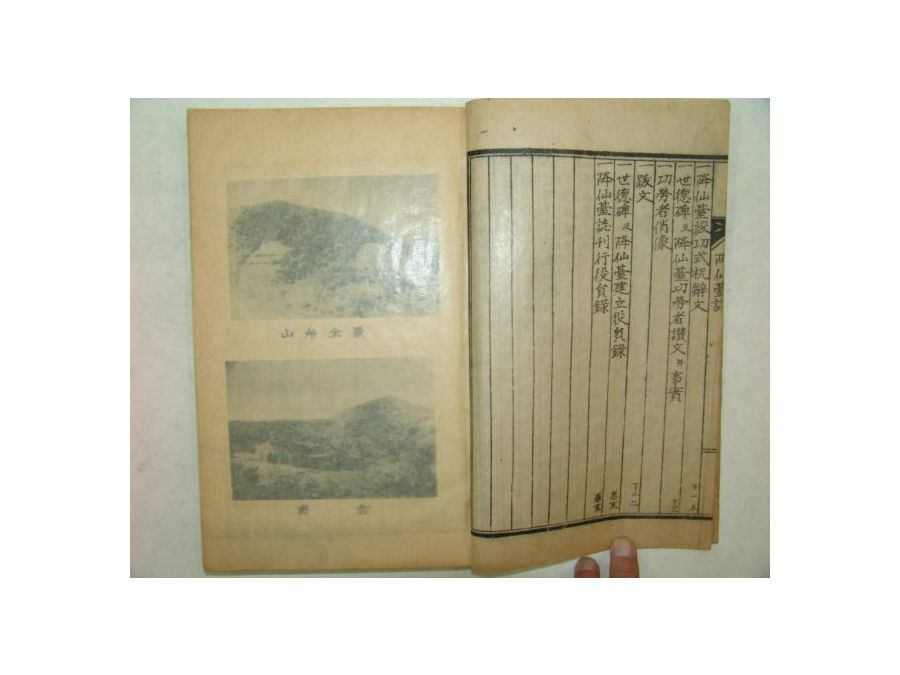 降仙臺誌
一降仙臺竣功式祝辭文 下一五
一世德碑及降仙臺功勞者讚文幷事實
一功勞者肖像
跋文 下二二
一世德碑及降仙臺建立役員錄 卷末
一降仙臺誌刊行役員錄 卷末
山所全景
齋舍